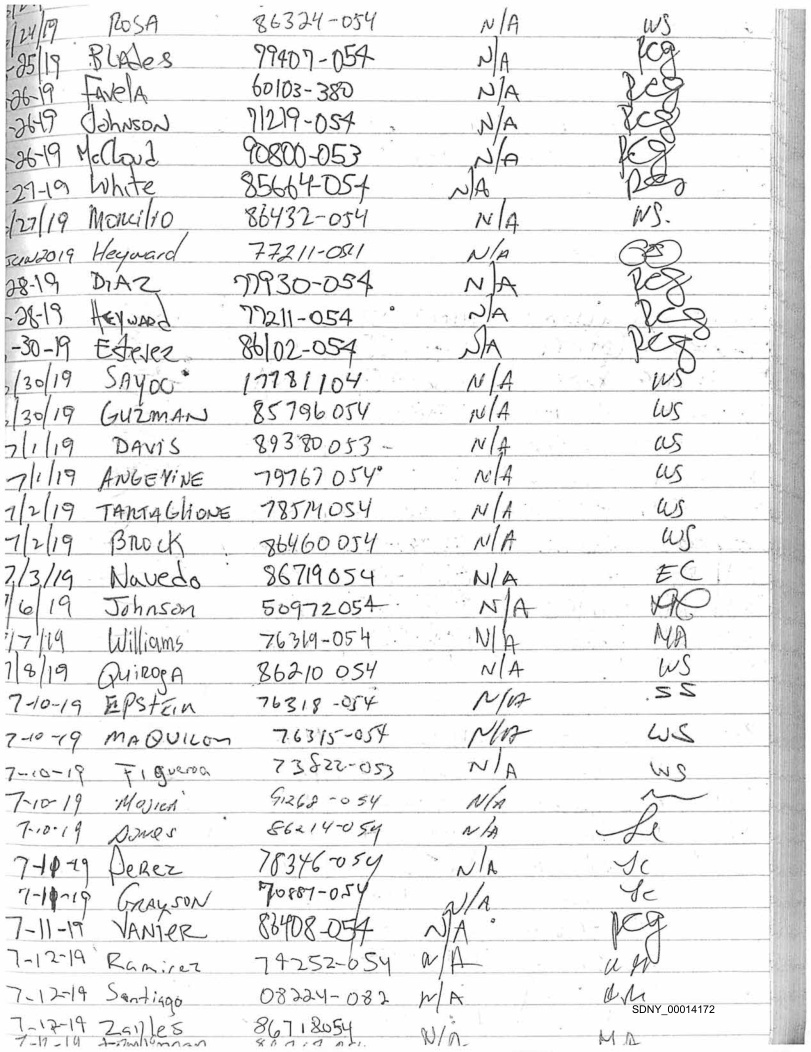 /24/19 ROSA 86324-054 N/A WS
-25/19 BLADES 79407-054 N/A RCG
-26-19 FAVELA 60103-380 N/A RCG
-26-19 JOHNSON 71219-054 N/A RCG
-26-19 McCloud 90800-053 N/A RCG
-27-19 White 85664-054 N/A RCG
/27/19 86432-054 N/A WS.
Jun2019 Heyward 77211-051 N/A
28-19 DIAZ 77930-054 N/A RCG
-28-19 HEYWARD 77211-054 N/A RCG
-30-19 Estevez 86102-054 N/A RCG
/30/19 SAYOC 17781104 N/A WS
/30/19 GUZMAN 85796054 N/A WS
7/1/19 DAVIS 89380053- N/A WS
7/1/19 ANGEVINE 79767054 N/A WS
7/2/19 TARTAGLIONE 78514054 N/A WS
7/2/19 BROCK 86460054 N/A WS
7/3/19 Navedo 86719054 N/A EC
/6/19 Johnson 50972054 N/A
/7/19 Williams 76319-054 N/A MA
7/8/19 QUIROGA 86210 054 N/A WS
7-10-19 EPStEin 76318-054 N/A SS
7-10-19 MAQUILON 76315-054 N/A WS
7-10-19 Figueroa 73822-053 N/A WS
7-10-19 MOJICA 91268-054 N/A
7-10-19 86214-054 N/A
7-10-19 PEREZ 78346-054 N/A
7-10-19 GRAYSON 70887-054 N/A
7-11-19 VANIER 86408-054 N/A RCG
7-12-19 Ramirez 79252-054 N/A
7-12-19 Santiago 08224-082 N/A
SDNY_00014172
7-12-19 86718054 N/A MA